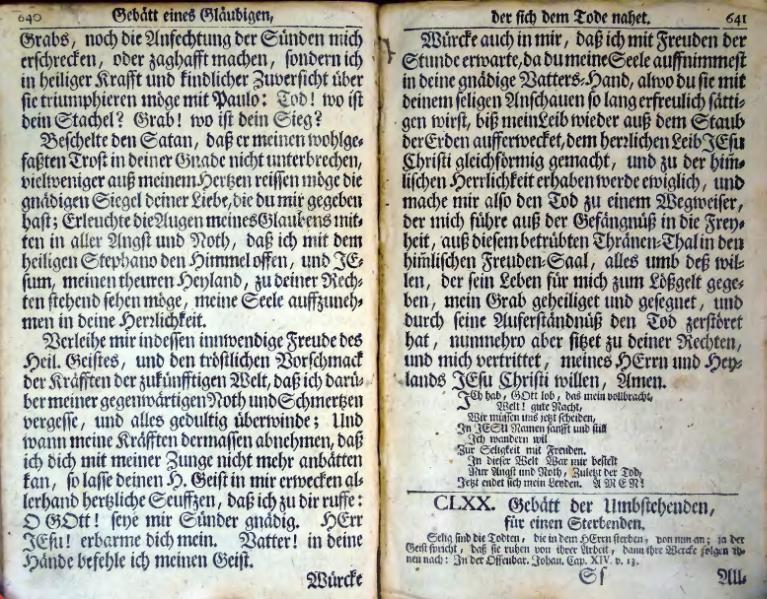 640 Gebätt eines Gläubigen,
Grabs, noch die Anfechtung der Sünden mich
erschrecken, oder zaghafft machen, sondern ich
in heiliger Krafft und kindlicher Zuversicht über
sie triumphieren möge mit Paulo: Tod! wo ist
dein Stachel? Grab! wo ist dein Sieg?
Beschelte den Satan, daß er meinen wohlge-
faßten Trost in deiner Gnade nicht unterbrechen,
vielweniger auß meinem Hertzen reissen möge die
gnädigen Siegel deiner Liebe, die du mir gegeben
hast; Erleuchte die Augen meines Glaubens mit-
ten in aller Angst und Noth, daß ich mit dem
heiligen Stephano den Himmel offen, und JE-
sum, meinen theuren Heyland, zu deiner Rech-
ten stehend sehen möge, meine Seele auffzuneh-
men in deine Herrlichkeit.
Verleihe mir indessen innwendige Freude des
Heil. Geistes, und den tröstlichen Vorschmack
der Kräfften der zukünfftigen Welt, daß ich darü-
ber meiner gegenwärtigen Noth und Schmertzen
vergesse, und alles gedultig überwinde; Und
wann meine Kräfften dermassen abnehmen, daß
ich dich mit meiner Zunge nicht mehr anbätten
kan, so lasse deinen H. Geist in mir erwecken al-
lerhand hertzliche Seuffzen, daß ich zu dir ruffe:
O GOtt! seye mir Sünder gnädig. HErr
JEsu! erbarme dich mein. Vatter! in deine
Hände befehle ich meinen Geist.
Würcke
der sich dem Tode nahet. 641
Würcke auch in mir, daß ich mit Freuden der
Stunde erwarte, da du meine Seele auffnimmest
in deine gnädige Vatters-Hand, alwo du sie mit
deinem seligen Anschauen so lang erfreulich sätti-
gen wirst, biß mein Leib wieder auß dem Staub
der Erden aufferwecket, dem herrlichen Leib JEsu
Christi gleichförmig gemacht, und zu der him̄-
lischen Herrlichkeit erhaben werde ewiglich, und
mache mir also den Tod zu einem Wegweiser,
der mich führe auß der Gefängnüß in die Frey-
heit, auß diesem betrübten Thränen-Thal in den
him̄lischen Freuden-Saal, alles umb deß wil-
len, der sein Leben für mich zum Lößgelt gege-
ben, mein Grab geheiliget und gesegnet, und
durch seine Auferständnüß den Tod zerstöret
hat, nunmehro aber sitzet zu deiner Rechten,
und mich vertrittet, meines HErrn und Hey-
lands JEsu Christi willen, Amen.
JCh hab, GOtt lob, das mein vollbracht,
Welt! gute Nacht,
Wir müssen uns jetzt scheiden,
In JESU Namen sanfft und still
Ich wandern wil
Zur Seligkeit mit Freuden.
In dieser Welt War mir bestelt
Nur Angst und Noth, Zuletzt der Tod,
Jetzt endet sich mein Leyden. AMEN!
CLXX. Gebätt der Umbstehenden,
für einen Sterbenden.
Selig sind die Todten, die in dem HErrn sterben, von nun an; ja der
Geist spricht, daß sie ruhen von ihrer Arbeit, dann ihre Wercke folgen ih-
nen nach: In der Offenbar. Johan. Cap. XIV. v. 13.
Sf All-